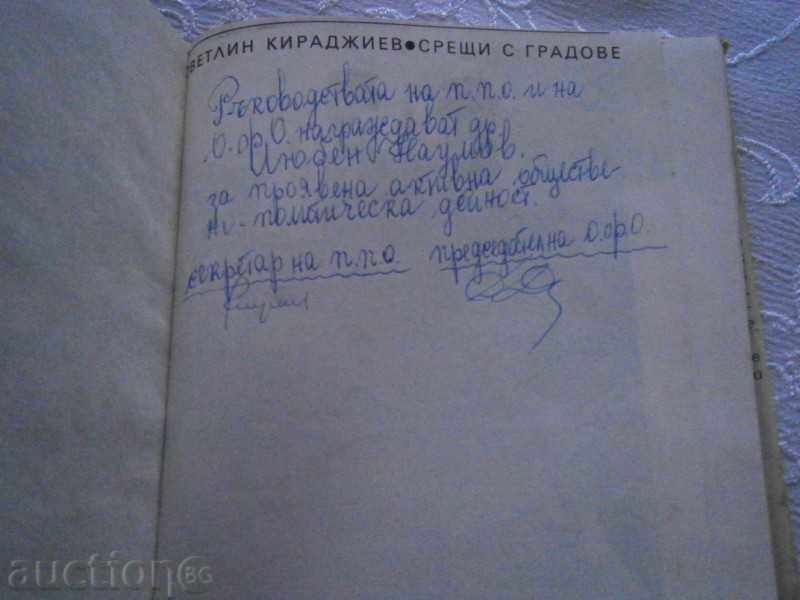 ВЕТЛИН КИРАДЖИЕВ●СРЕЩИ С ГРАДОВЕ
Ръководствата на п.п.о. и на
О.ф.О. награждават др.
Наумов.
за проявена активна обществе
но-политическа дейност.
секретар на п.п.о. председател на О.ф.О.
auction BG